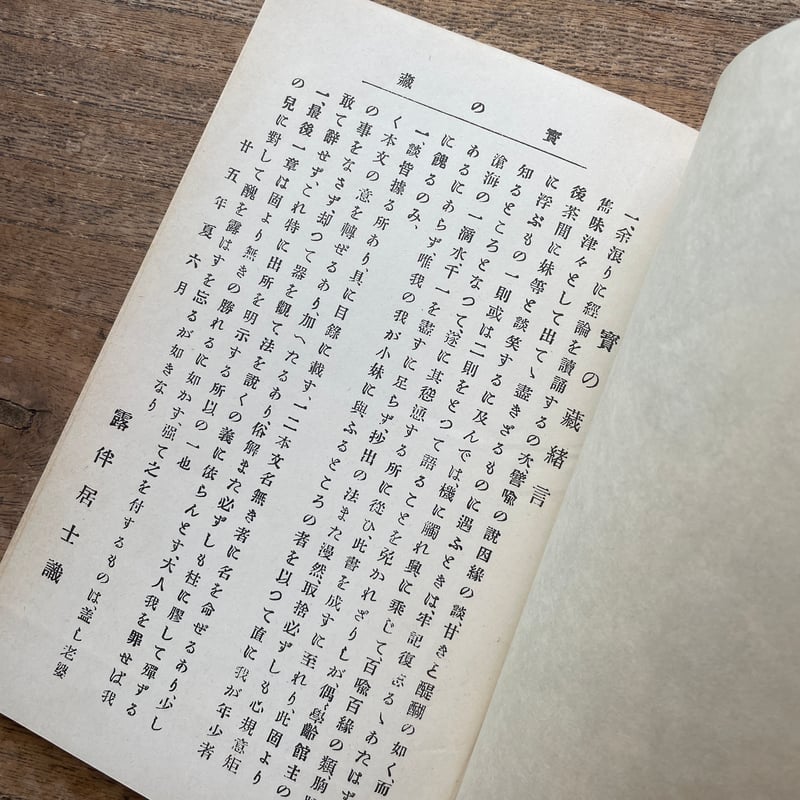 寳の藏
寳の藏緒言
一、余濵りに經論を讀誦するの次、譬喩の說因緣の談甘きこと醍醐の如く、而
雋味津々として出でゝ盡きざるものに遇ふときは、牢記復ふるゝあたはず
後茶間に妹等と談笑するに及んでは、機に觸れ興に乘じて、百喩百緣の類、胸
に浮ぶもの一則或は二則をとつて語ることを免かれざりしが、偶學齡館主の
知るところとなつて、遂に其慫慂する所に從ひ、此書を成すに至れり、此固より
滄海の一滴水千一を盡すに足らず抄出の法また漫然、取捨必ずしも心規意矩
あるにあらず、唯我の我が小妹に與ふるところの者を以つて直に我が年少者
に餽るのみ、
一、談皆據る所あり、具に目錄に載す、一二本文名無き者に名を命ぜるあり、少し
く本文の意を轉ぜるあり、加へたるあり、俗解また必ずしも柱に膠して殫ずる
の事をなさず、却つて器を觀て法を說くの義に依らんとす、大人我を罪せば我
敢て辭せず、これ特に出所を明示する所以の一也
一、最後一章は固より無きの勝れるに如かず、强て之を付するものは、蓋し老婆
の兒に對して醜を露はすを忘るが如きなり
廿五年夏六月
露伴居士識